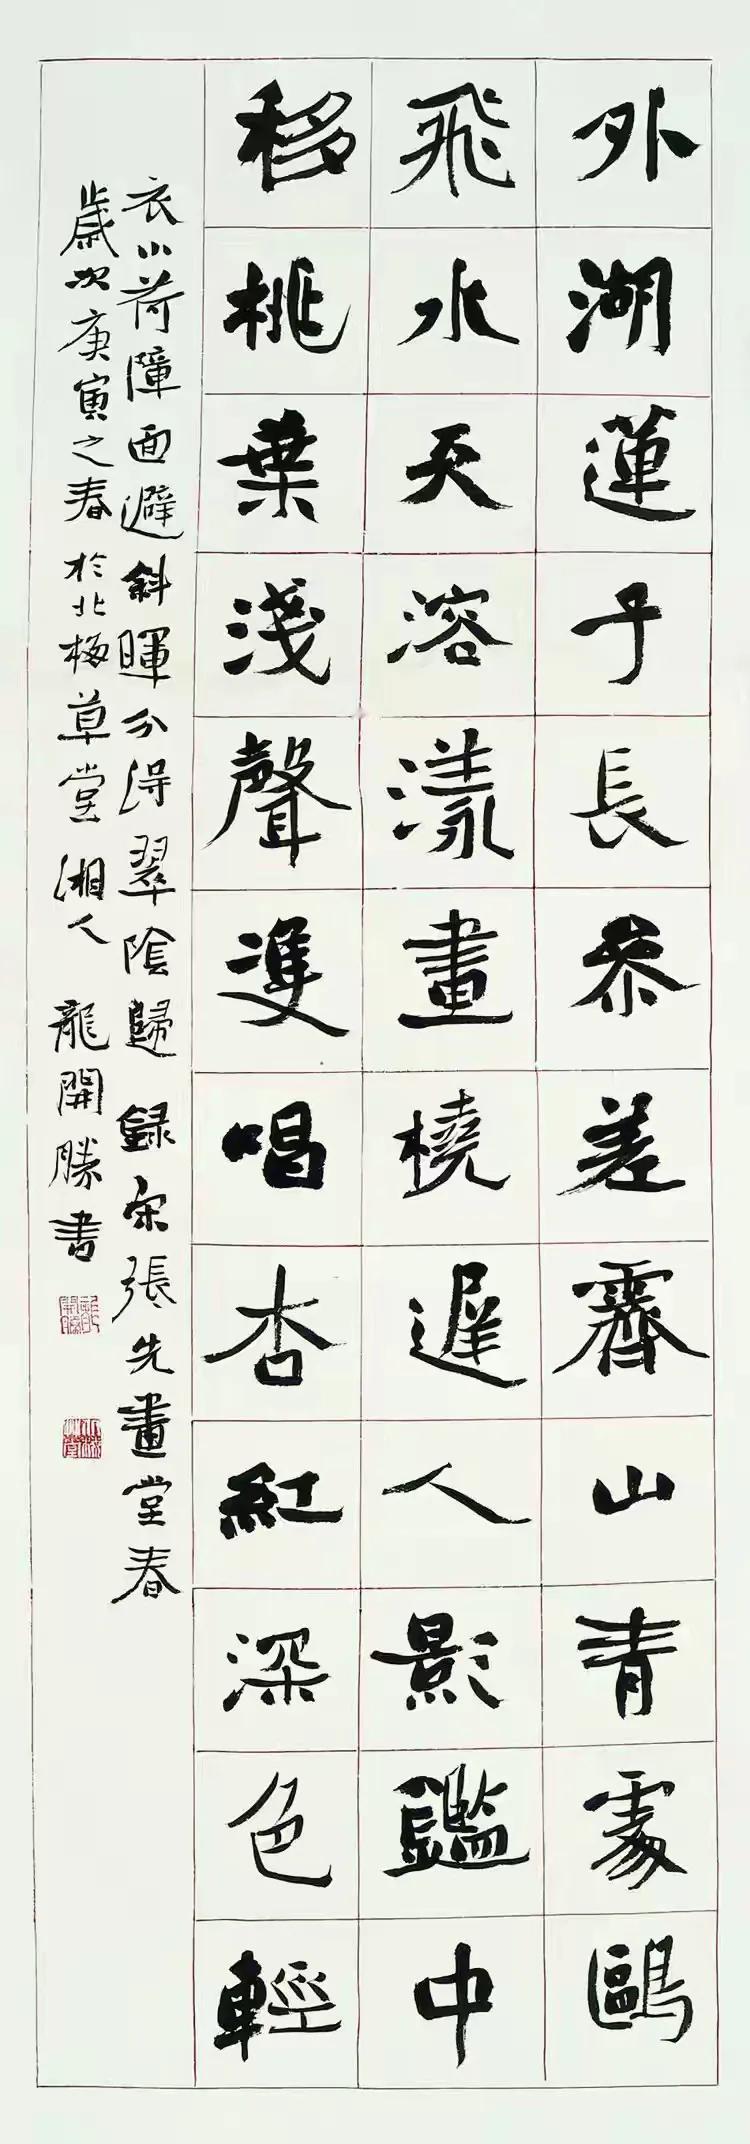 外湖蓮子長參差霽山青處鷗
飛水天溶漾畫橈遲人影鑑中
移桃葉淺聲雙唱杏紅深色輕
衣小荷障面避斜暉分得翠陰歸 錄宋張先畫堂春
歲次庚寅之春於北梅草堂湘人 龍開勝書